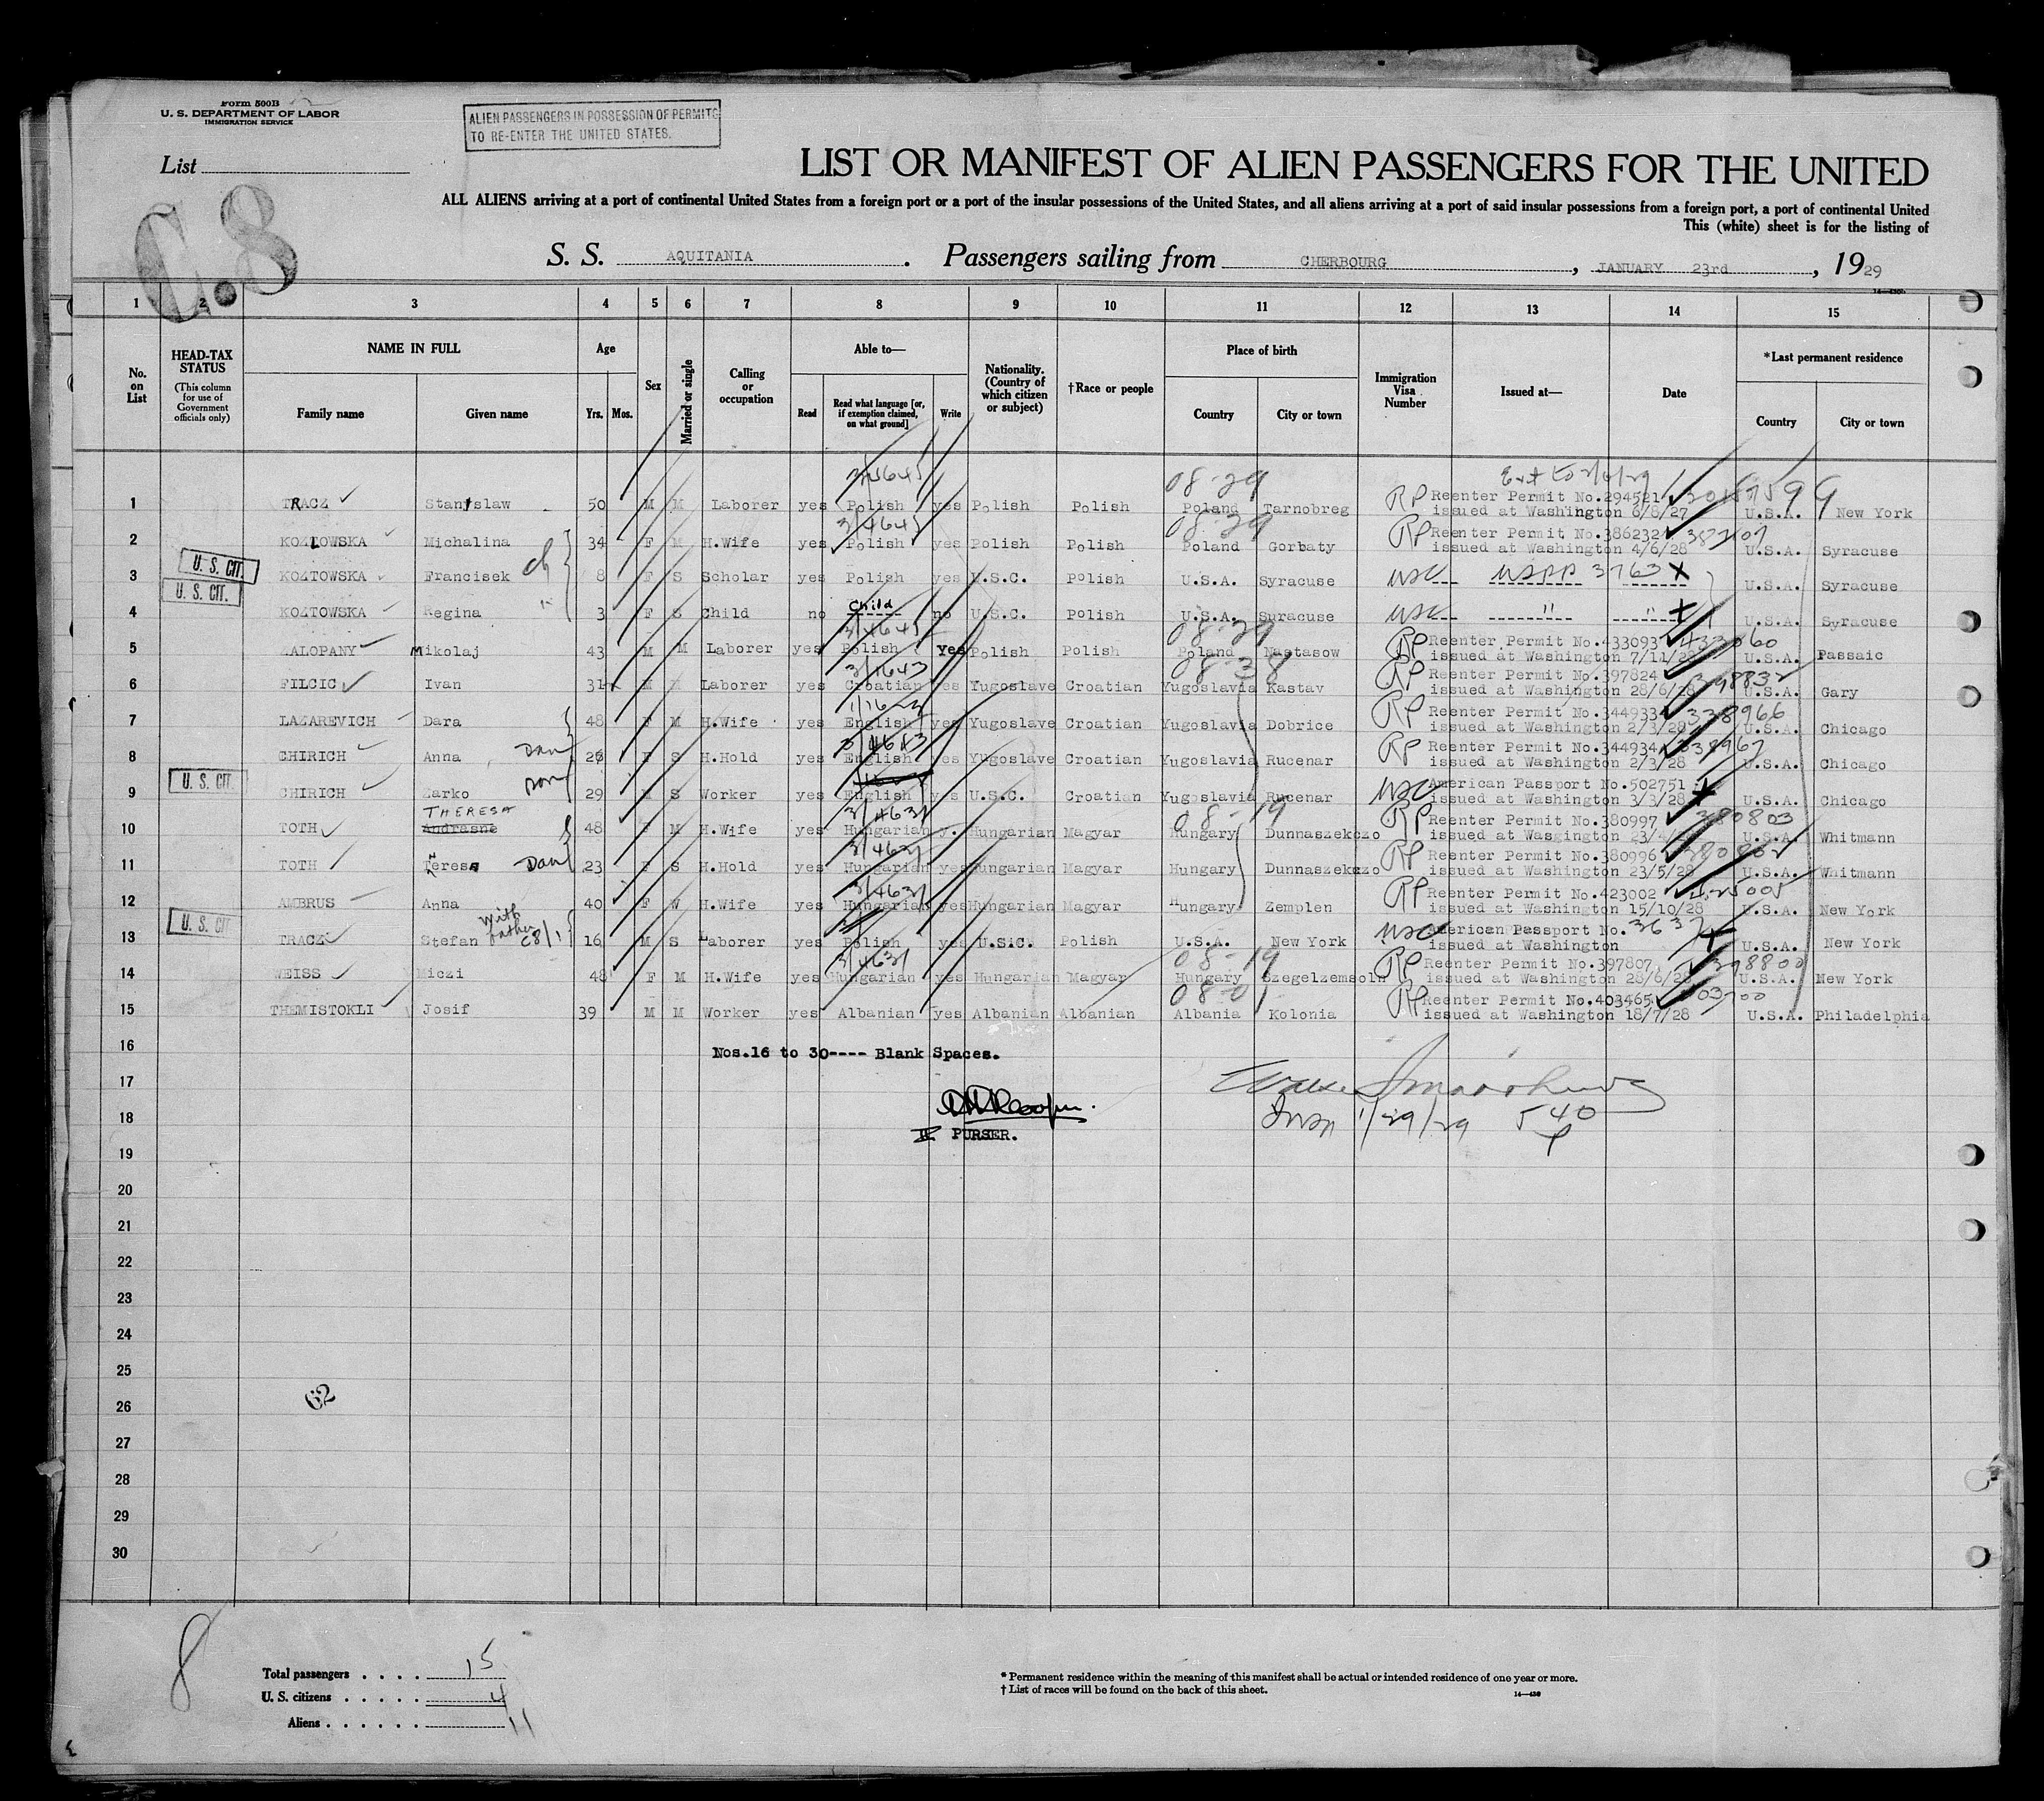 Form 500B
U. S. DEPARTMENT OF LABOR
IMMIGRATION SERVICE
ALIEN PASSENGERS IN POSSESSION OF PERMITS
TO RE-ENTER THE UNITED STATES.
List
C.8
LIST OR MANIFEST OF ALIEN PASSENGERS FOR THE UNITED
ALL ALIENS arriving at a port of continental United States from a foreign port or a port of the insular possessions of the United States, and all aliens arriving at a port of said insular possessions from a foreign port, a port of continental United
This (white) sheet is for the listing of
S. S. AQUITANIA. Passengers sailing from CHERBOURG, JANUARY 23rd, 1929
1 2 3 4 5 6 7 8 9 10 11 12 13 14 15
No. on List
HEAD-TAX STATUS (This column for use of Government officials only)
NAME IN FULL Family name Given name
Age Yrs. Mos.
Sex
Married or single
Calling or occupation
Able to— Read Read what language [or, if exemption claimed, on what ground] Write
Nationality. (Country of which citizen or subject)
†Race or people
Place of birth Country City or town
Immigration Visa Number
Issued at—
Date
*Last permanent residence Country City or town
Ext to
1 TRACZ Stanislaw 50 M M Laborer yes Polish yes Polish Polish 08-29 Poland Tarnobreg RP Reenter Permit No.294521 issued at Washington 6/8/27 U.S.A. New York
2 KOZLOWSKA Michalina 34 F M H.Wife yes Polish yes Polish Polish Poland Gorbaty RP Reenter Permit No.386232 issued at Washington 4/6/28 U.S.A. Syracuse
3 U. S. CIT. KOZTOWSKA Francisek ch 8 F S Scholar yes Polish yes U.S.C. Polish U.S.A. Syracuse USC USPP 3763 X U.S.A. Syracuse
4 U. S. CIT. KOZTOWSKA Regina " 3 F S Child no Child no U.S.C. Polish U.S.A. Suracuse USC " " X U.S.A. Syracuse
5 ZALOPANY Mikolaj 43 M M Laborer yes Polish yes Polish Polish 08-29 Poland Nastasow RP Reenter Permit No.433093 issued at Washington 7/11/28 U.S.A. Passaic
6 FILCIC Ivan 31 M Laborer yes Croatian yes Yugoslave Croatian 08-38 Yugoslavia Kastav RP Reenter Permit No.397824 issued at Washington 28/6/28 U.S.A. Gary
7 LAZAREVICH Dara 48 F M H.Wife yes English yes Yugoslave Croatian Yugoslavia Dobrice RP Reenter Permit No.344933 338966 issued at Washington 2/3/28 U.S.A. Chicago
8 CHIRICH Anna Dau 26 F S H.Hold yes English yes Yugoslave Croatian Yugoslavia Rucenar RP Reenter Permit No.344934 338967 issued at Washington 2/3/28 U.S.A. Chicago
9 U. S. CIT. CHIRICH Zarko son 29 M S Worker yes English yes U.S.C. Croatian Yugoslavia Rucenar USC American Passport No.502751 issued at Washington 3/3/28 U.S.A. Chicago
10 TOTH THERESA Andrasne 48 F M H.Wife yes Hungarian y. Hungarian Magyar 08-19 Hungary Dunnaszekczo RP Reenter Permit No.380997 380803 issued at Wasgington U.S.A. Whitmann
11 TOTH Teresa Dau 23 F S H.Hold yes Hungarian yes Hungarian Magyar Hungary Dunnaszekczo RP Reenter Permit No.380996 380802 issued at Washington 23/5/28 U.S.A. Whitmann
12 AMBRUS Anna 40 F W H.Wife yes Hungarian yes Hungarian Magyar Hungary Zemplen RP Reenter Permit No.423002 issued at Washington 15/10/28 U.S.A. New York
13 U. S. CIT TRACZ Stefan with father C8/1 16 M S Laborer yes Polish yes U.S.C. Polish U.S.A. New York USC American Passport No. issued at Washington U.S.A. New York
14 WEISS Miczi 48 F M H.Wife yes Hungarian yes Hungarian Magyar 08-19 Hungary Szegelzemsoln RP Reenter Permit No.397807 issued at Washington 28/6/28 U.S.A. New York
15 THEMISTOKLI Josif 39 M M Worker yes Albanian yes Albanian Albanian 08-01 Albania Kolonia RP Reenter Permit No.403465 issued at Washington 18/7/28 U.S.A. Philadelphia
16 Nos.16 to 30---- Blank Spaces.
17
18 Insp 1/29/29 540
PURSER.
19
20
21
22
23
24
25
26
62
27
28
29
30
8
Total passengers . . . . 15
U. S. citizens . . . . . 4
Aliens . . . . . . 11
* Permanent residence within the meaning of this manifest shall be actual or intended residence of one year or more.
† List of races will be found on the back of this sheet.